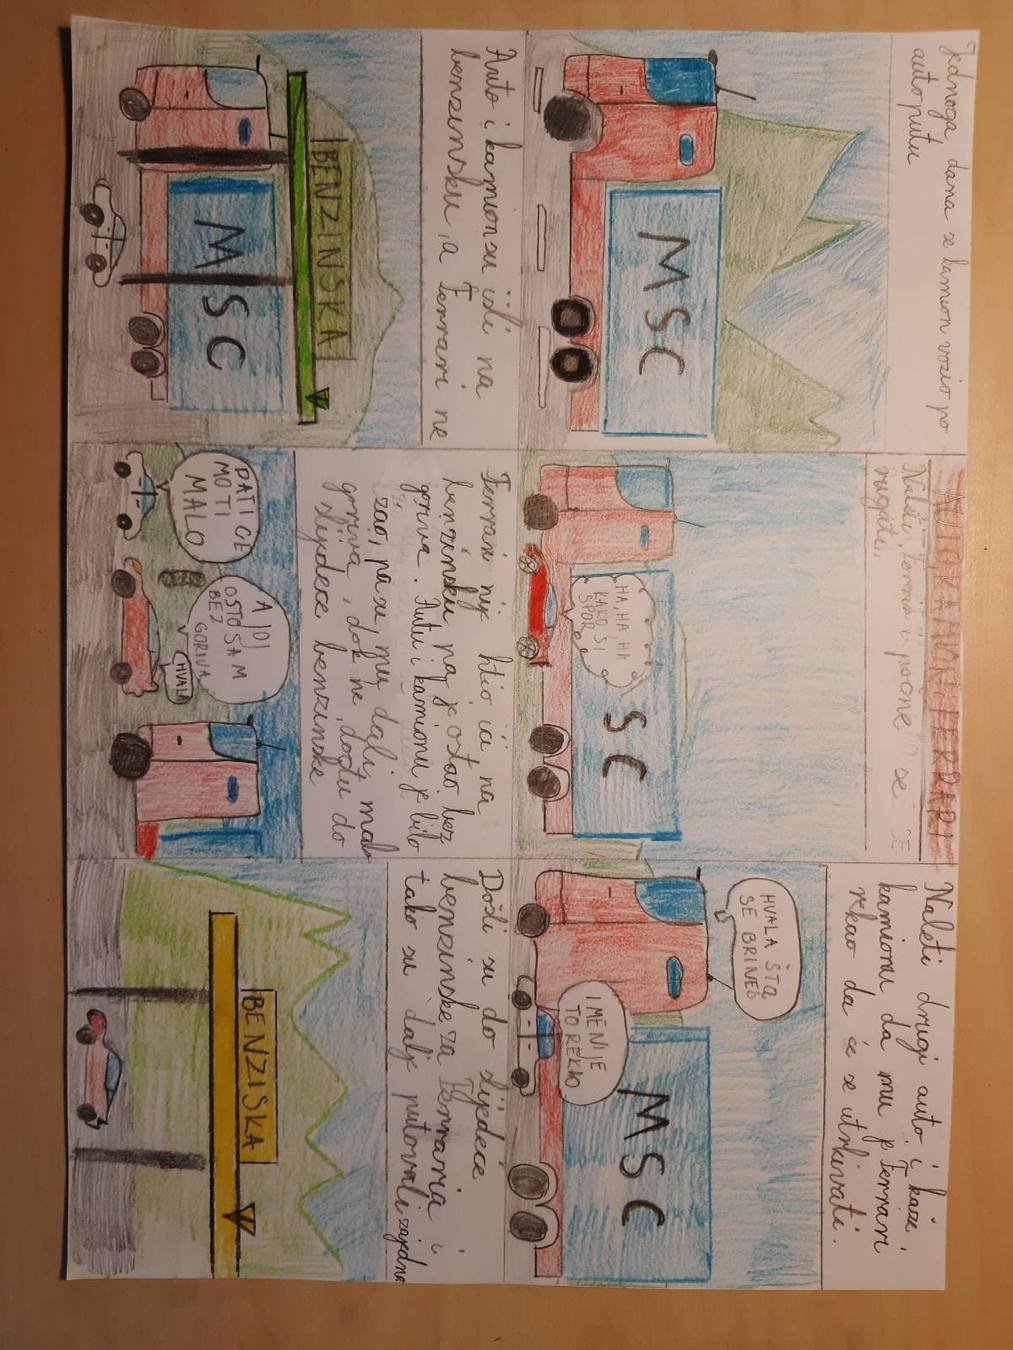 AUTO, KAMION I FERRARI
Jednoga, dana se kamion vozio po
autoputu
MSC
Naleti, ferrari i počne se
rugati.
HA, HA HA HA
KAKO SI
SPOR
SC
Naleti drugi auto i kaže,
kamionu da mu je Ferrari
rekao da će se utrkivati.
HVALA ŠTA
SE BRINEŠ
I MENI JE
TO REKAO
MSC
Auto i kamion su išli na
benzinsku, a Ferrari ne
BENZINSKA
MSC
Ferrari nije htio ići na
benzinsku, pa je ostao bez
goriva. Autu i kamionu je bilo
žao, pa su mu dali malo
goriva, dok ne dođu do
slijedeće benzinske
DATI ĆE
MOTI
MALO
AJOJ
OSTO SAM
BEZ
GORIVA
HVALA
Došli su do slijedeće
benzinske za Ferraria i
tako su dalje putovali zajedno
BENZISKA